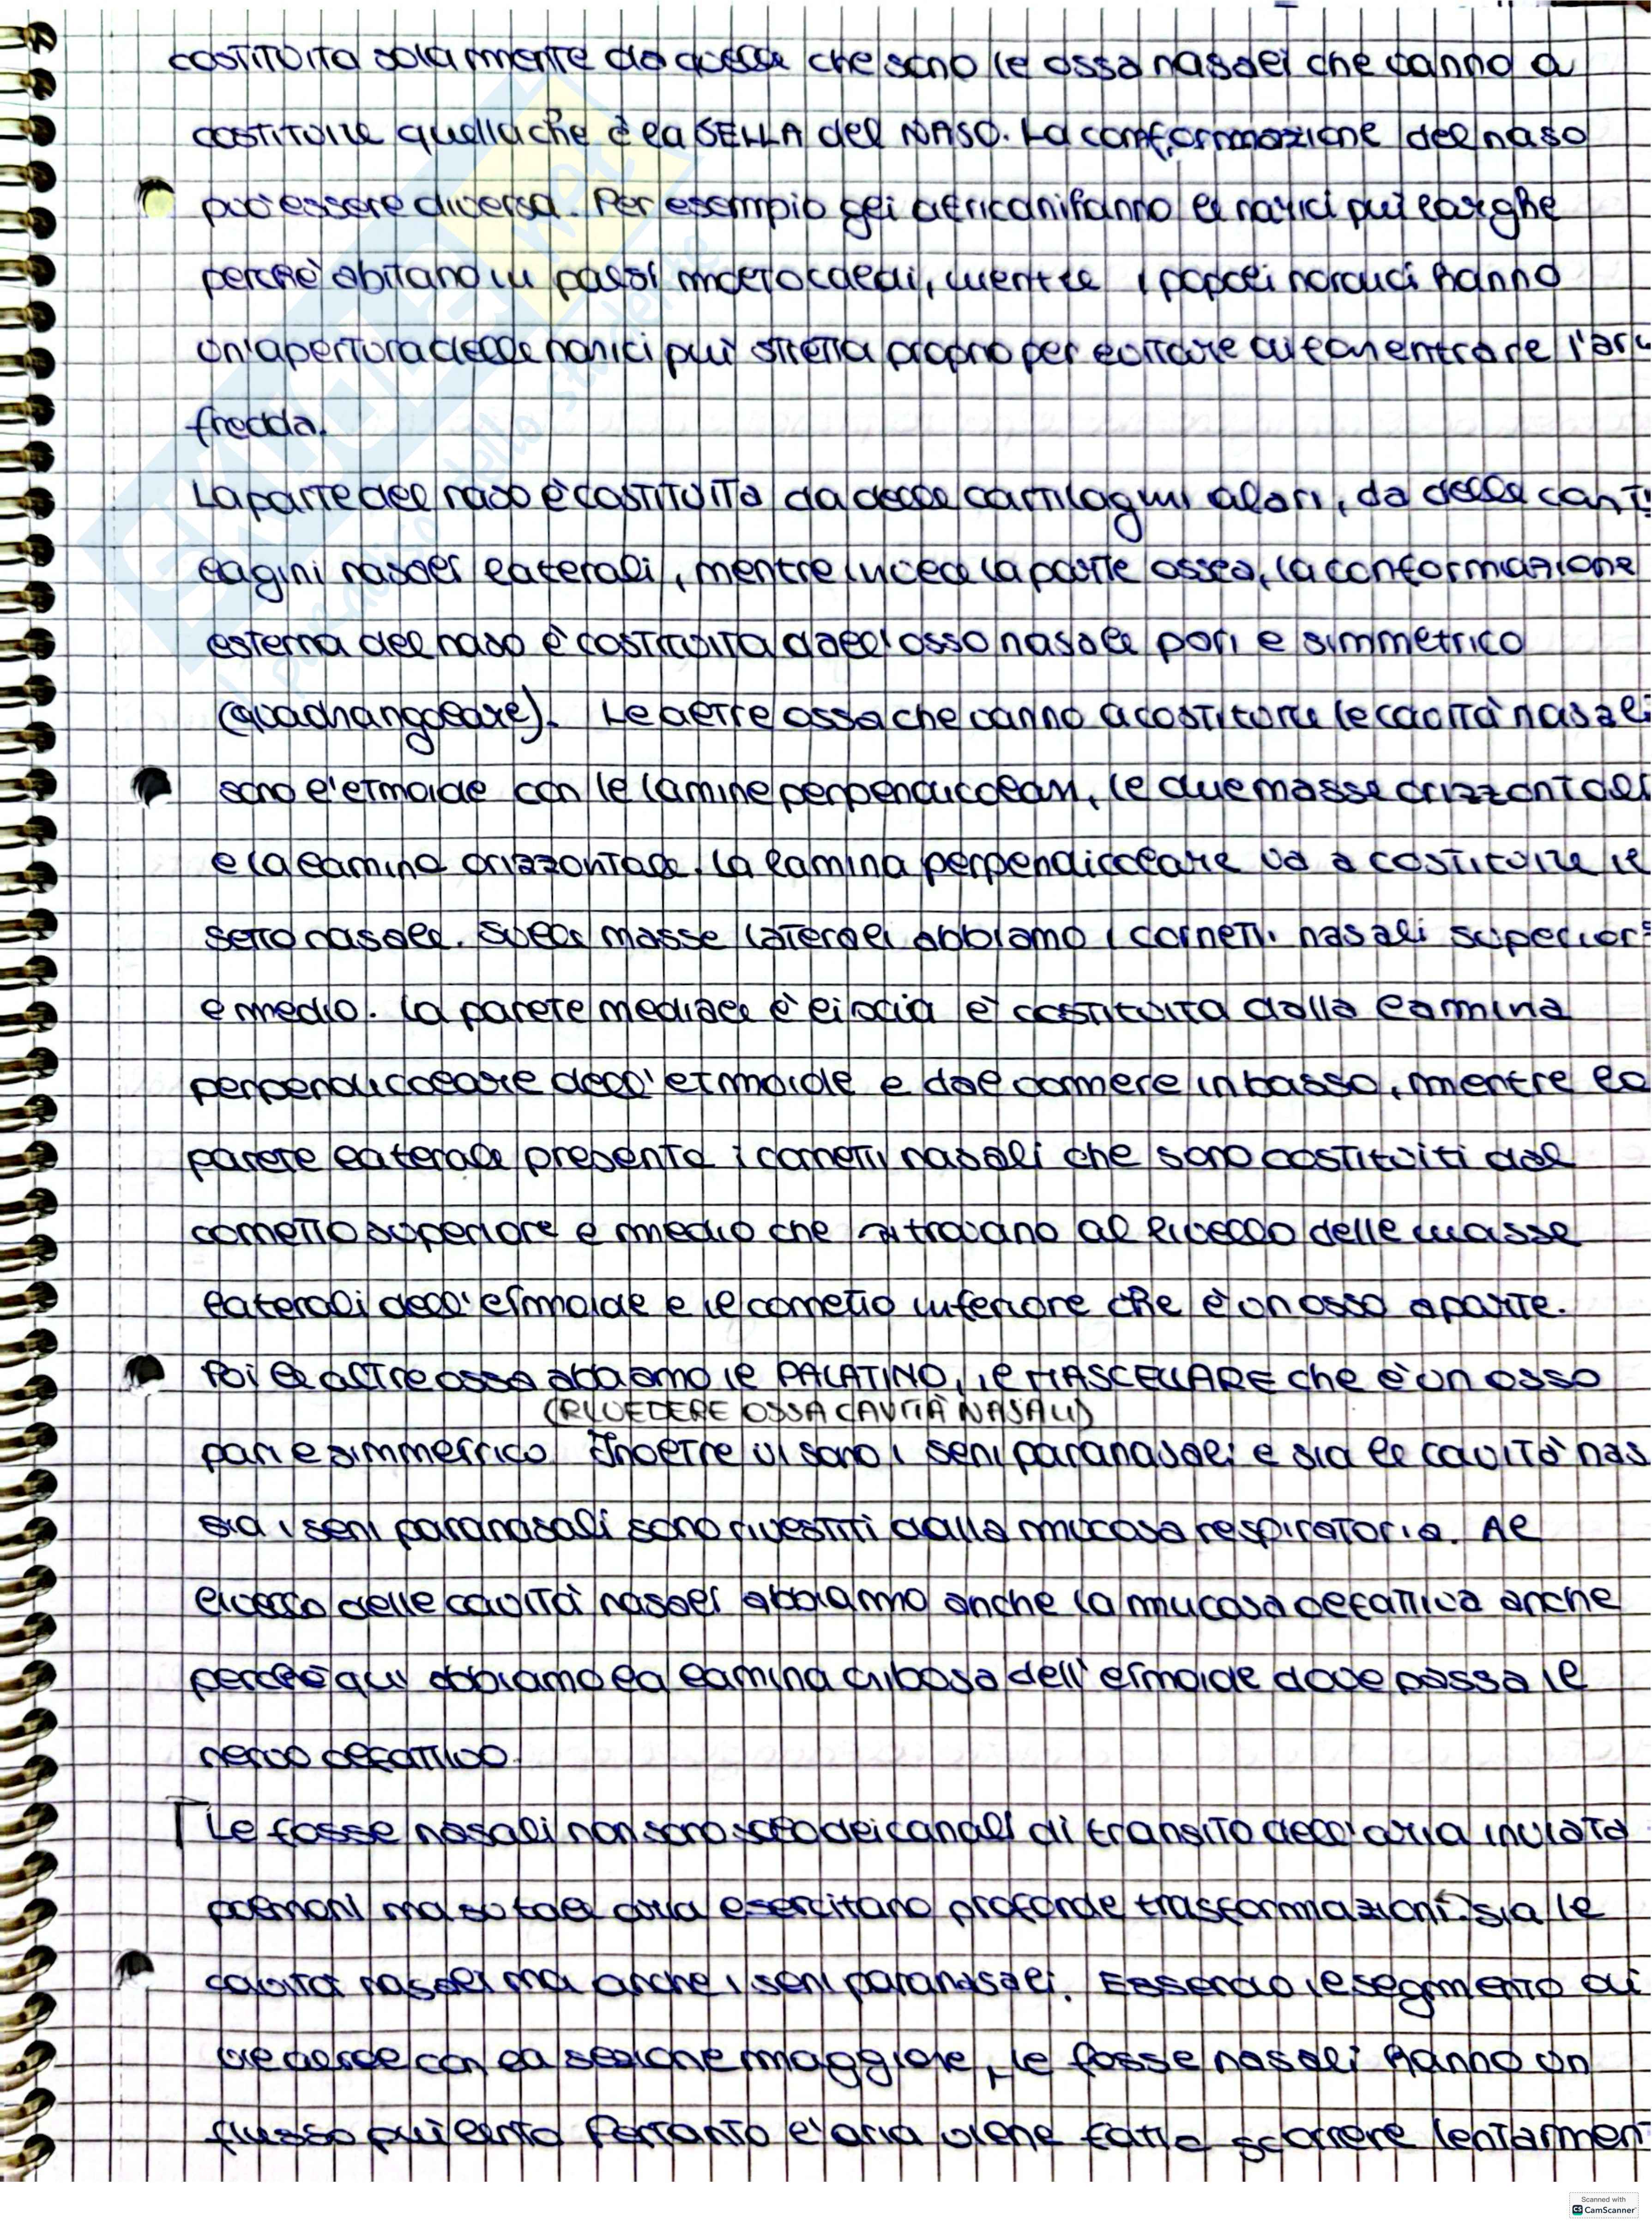 costituita solamente da quelle che sono le ossa nasali che vanno a
costituire quella che è la SELLA del NASO. La conformazione del naso
può essere diversa. Per esempio gli africani hanno le narici più larghe
perché abitano in paesi molto caldi, mentre i popoli nordici hanno
un'apertura delle narici più stretta proprio per evitare di far entrare l'aria
fredda.
La parte del naso è costituita da delle cartilagini alari, da delle carti
lagini nasali laterali, mentre invece la parte ossea, la conformazione
esterna del naso è costituita dall'osso nasale pari e simmetrico
(quadrangolare). Le altre ossa che vanno a costituire le cavità nasali
sono l'etmoide con le lamine perpendicolari, le due masse orizzontali
e la lamina orizzontale. La lamina perpendicolare va a costituire il
setto nasale. Sulle masse laterali abbiamo i cornetti nasali superiore
e medio. La parete mediale è liscia e costituita dalla lamina
perpendicolare dell'etmoide e dal vomere in basso, mentre la
parete laterale presenta i cornetti nasali che sono costituiti dal
cornetto superiore e medio che si trovano al livello delle masse
laterali dell'etmoide e il cornetto inferiore che è un osso a parte.
Poi le altre ossa abbiamo il PALATINO, il MASCELLARE che è un osso
(RIVEDERE OSSA CAVITÀ NASALI)
pari e simmetrico. Inoltre vi sono i seni paranasali e sia le cavità nas
sia i seni paranasali sono rivestiti dalla mucosa respiratoria. Al
livello delle cavità nasali abbiamo anche la mucosa olfattiva anche
perché qui abbiamo la lamina cribosa dell'etmoide dove passa il
nervo olfattivo.
Le fosse nasali non sono solo dei canali di transito dell'aria inviata
polmoni ma su tale aria esercitano profonde trasformazioni sia le
cavità nasali ma anche i seni paranasali. Essendo il segmento di
vie aeree con la sezione maggiore, le fosse nasali hanno un
flusso più lento Pertanto l'aria viene fatta scorrere lentamen
Scanned with
CS CamScanner